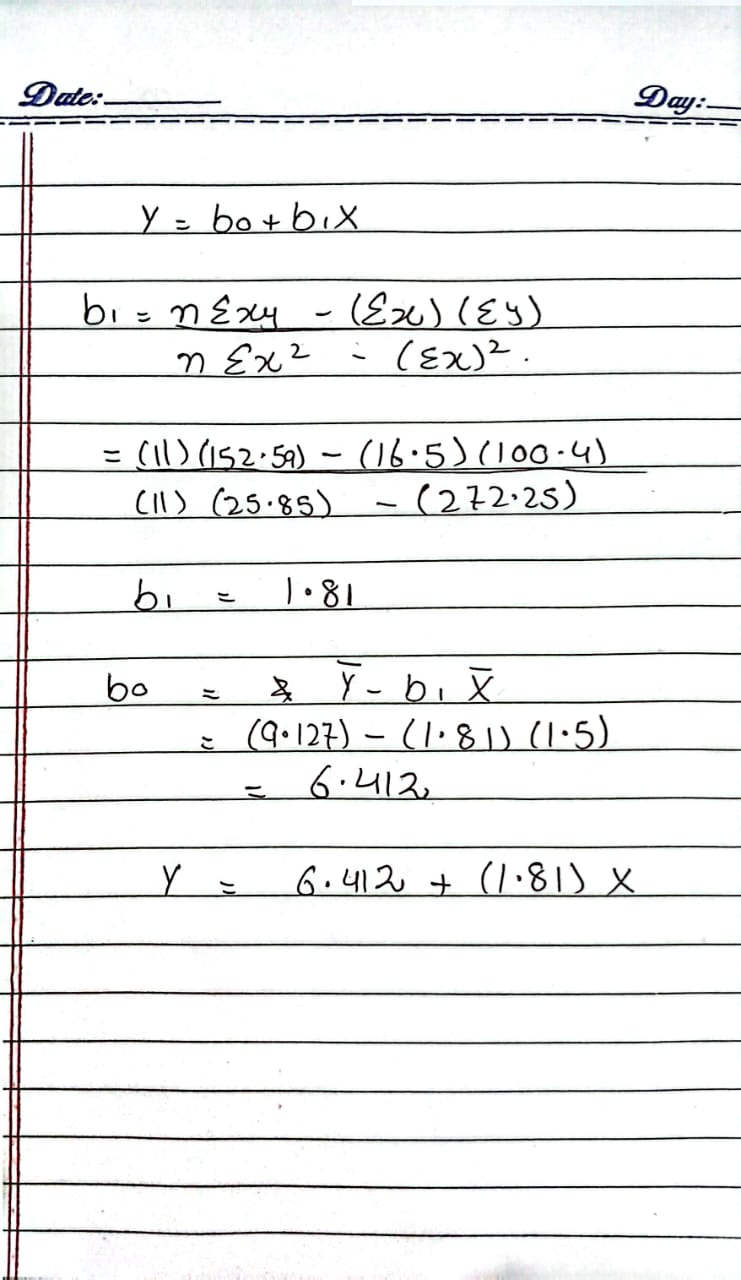 Date: Day:
Y = b0 + b1X
b1 = n Σxy - (Σx) (Σy)
n Σx² - (Σx)².
= (11) (152.59) - (16.5) (100.4)
(11) (25.85) - (272.25)
b1 = 1.81
b0 = Ȳ - b1 X̄
= (9.127) - (1.81) (1.5)
= 6.412
Y = 6.412 + (1.81) X